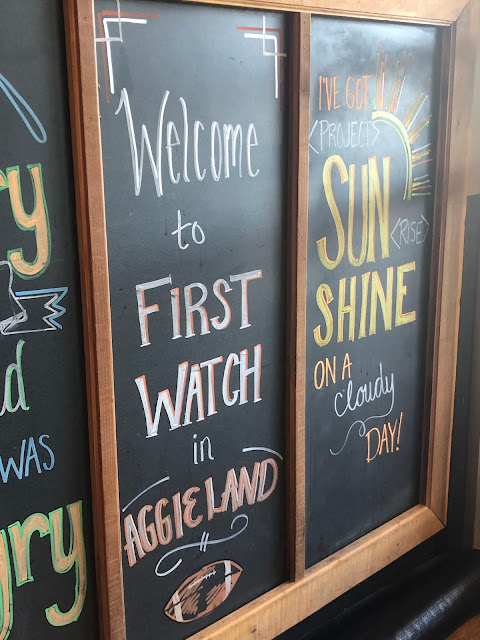 ry
d
WAS
gry
Welcome
to
FIRST
WATCH
in
AGGIELAND
I'VE GOT
<PROJECT>
SUN
<RISE>
SHINE
ON A
cloudy
DAY!